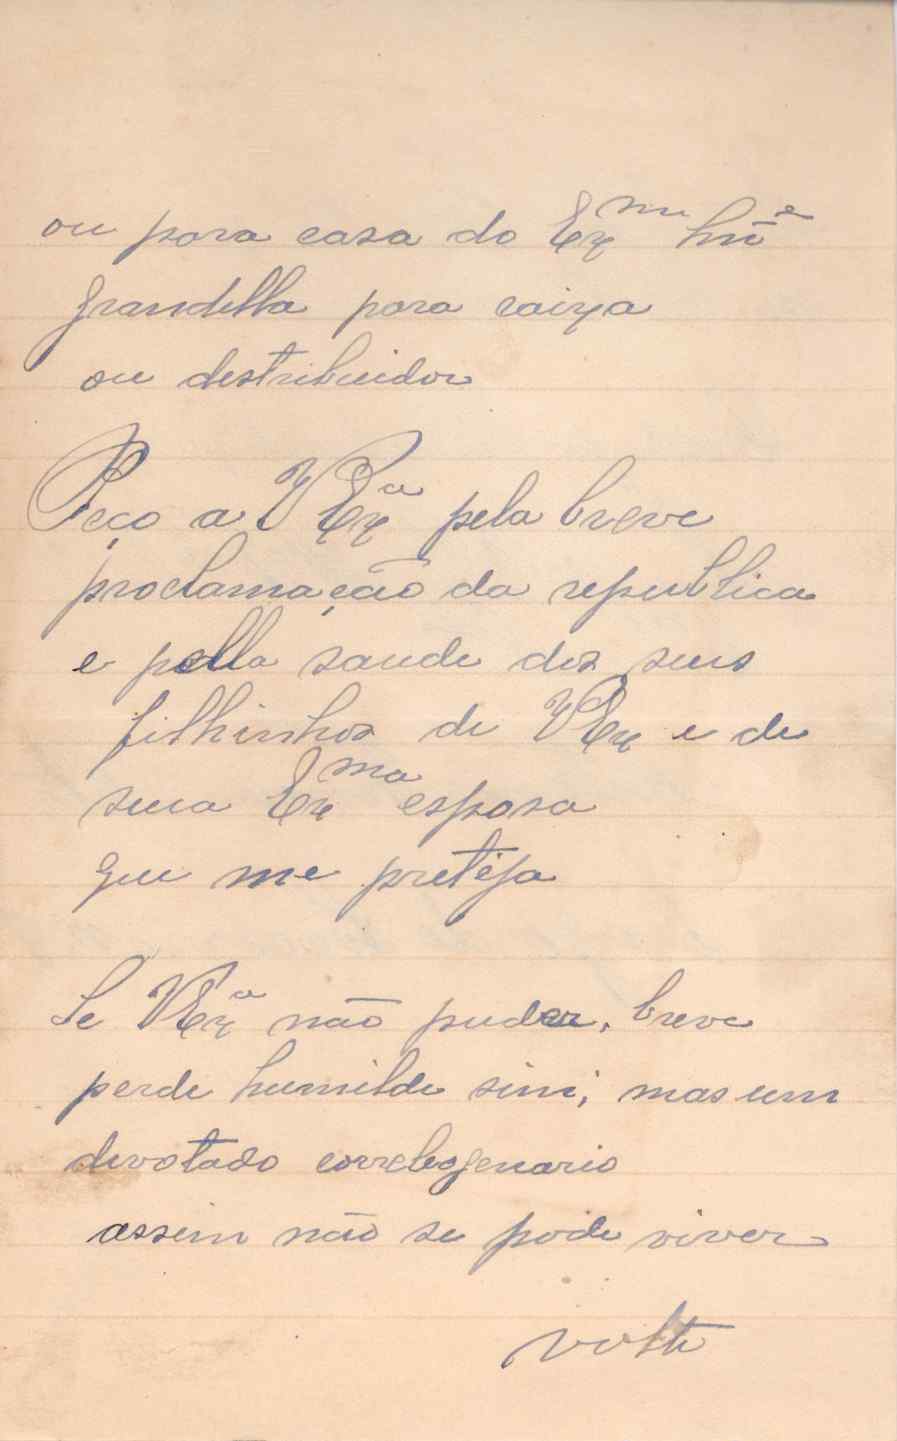 ou para casa do Ex^mo
grandella para caixa
ou destribuidor
Peço a V Ex^a pela breve
proclamação da republica
e pella saude dos seus
filhinhos de V Ex e de
sua Ex^ma esposa
que me preteja
Se V Ex^a não puder, breve
perde humilde sim, mas um
devotado correlegenario
assim não se pode viver
volte